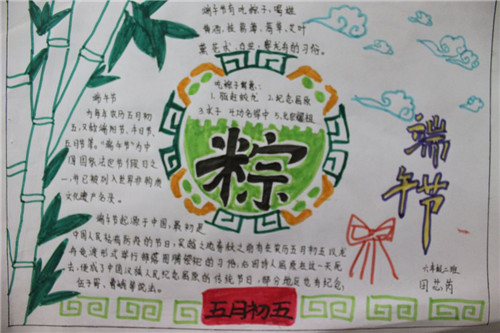 端午节有吃粽子、喝雄
黄酒、挂菖蒲、蒿草、艾叶
吃粽子寓意:
1.
2.纪念屈原
3.
4.功名得中
5.光宗耀祖
粽
端午节
为每年农历五月初
五,又称端阳节、午日节、
五月节等。“端午节”为中
国国家法定节假日之
一,并已被列入世界非物质
文化遗产名录。
端午节起源于中国,最初是
中国人民祛病防疫的节日,吴越之地春秋之前有在农历五月初五以龙
舟竞渡形式举行部落图腾祭祀的习俗;后因诗人屈原在这一天死
去,便成了中国汉族人民纪念屈原的传统节日;部分地区也有纪念
伍子胥、曹娥等说法。
端午节
六年级二班
五月初五